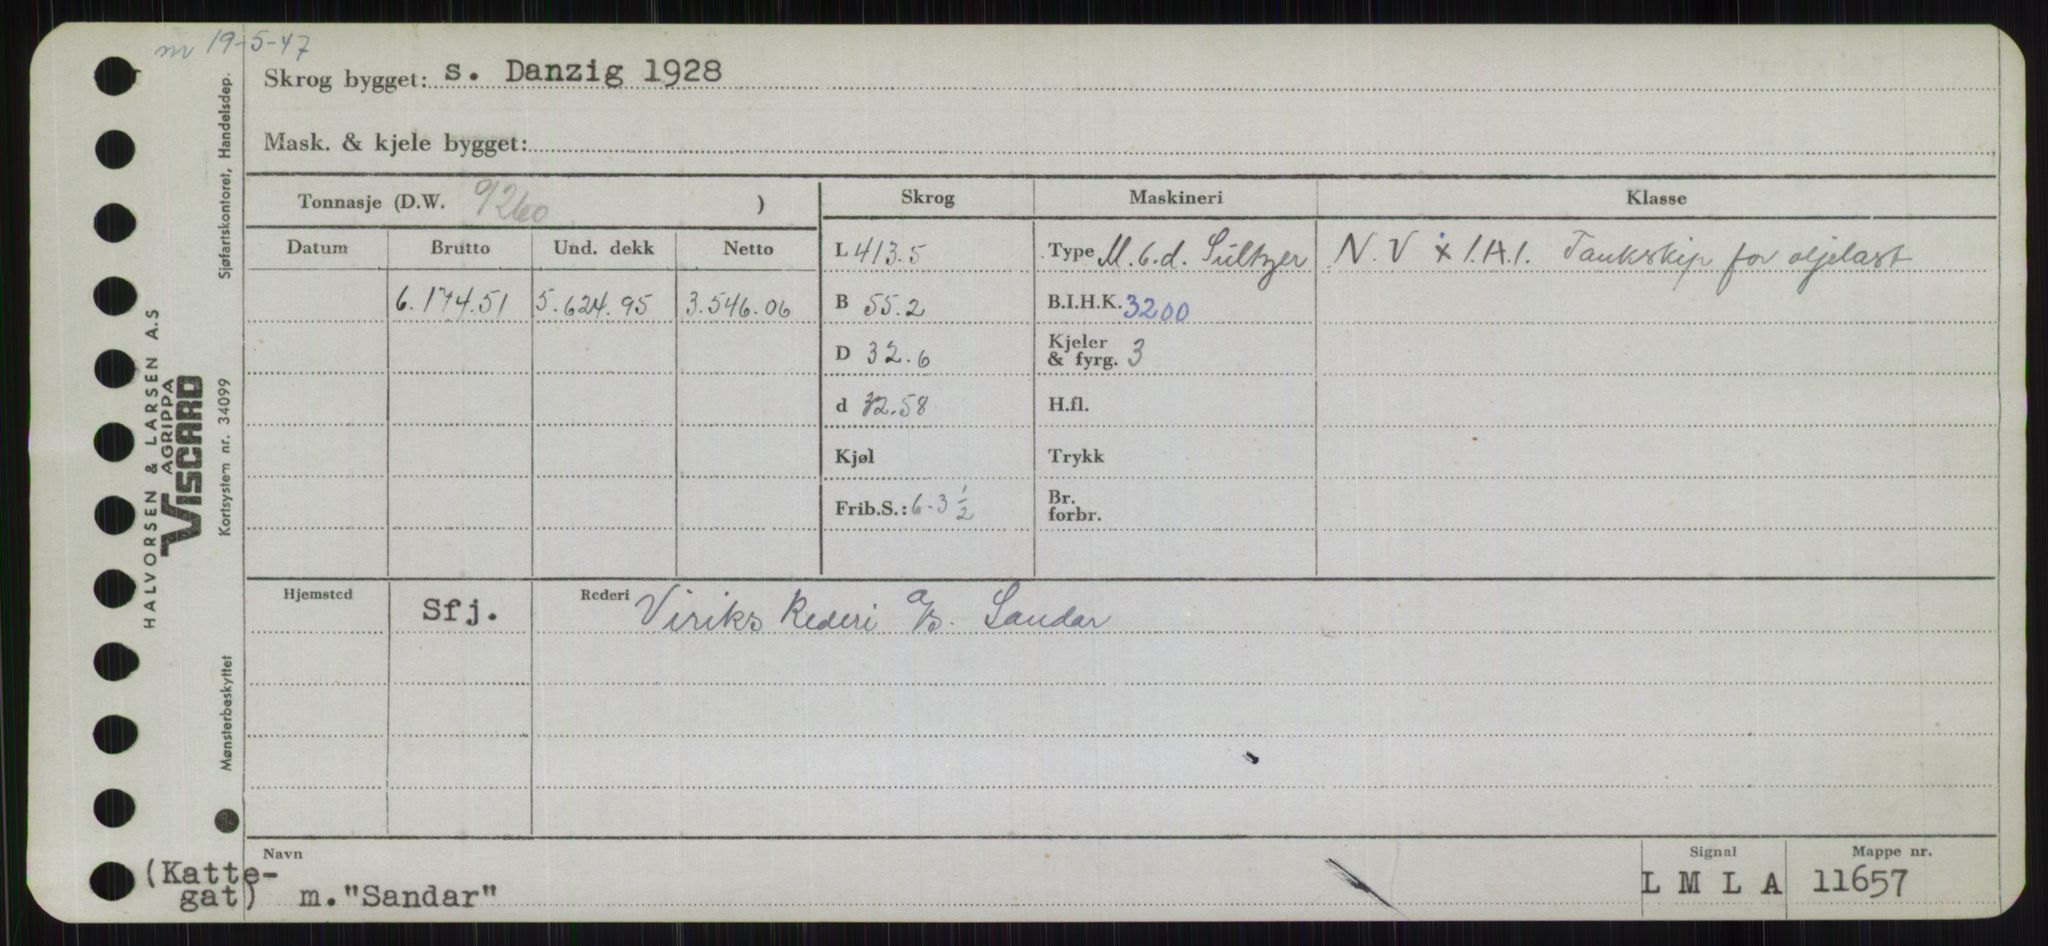 m 19-5-47
Skrog bygget: s. Danzig 1928
Mask. & kjele bygget:
Tonnasje (D.W. 9260 )
Skrog Maskineri Klasse
Datum Brutto Und. dekk Netto
L 413.5 Type M. 6.d. Sultzer N.V x 1.A.1. Tankskip for oljelast
6.174.51 5.624.95 3.546.06 B 55.2 B.I.H.K. 3200
D 32.6 Kjeler & fyrg. 3
d 32.58 H.fl.
Kjøl Trykk
Frib.S.: 6-3 1/2 Br. forbr.
Hjemsted Sfj. Rederi Viriks Rederi A/S. Sandar
Navn Signal Mappe nr.
(Katte-
gat) m."Sandar" L M L A 11657
HALVORSEN & LARSEN A.S
AGRIPPA
VISCARD
Mønsterbeskyttet Kortsystem nr. 34099 Sjøfartskontoret, Handelsdep.